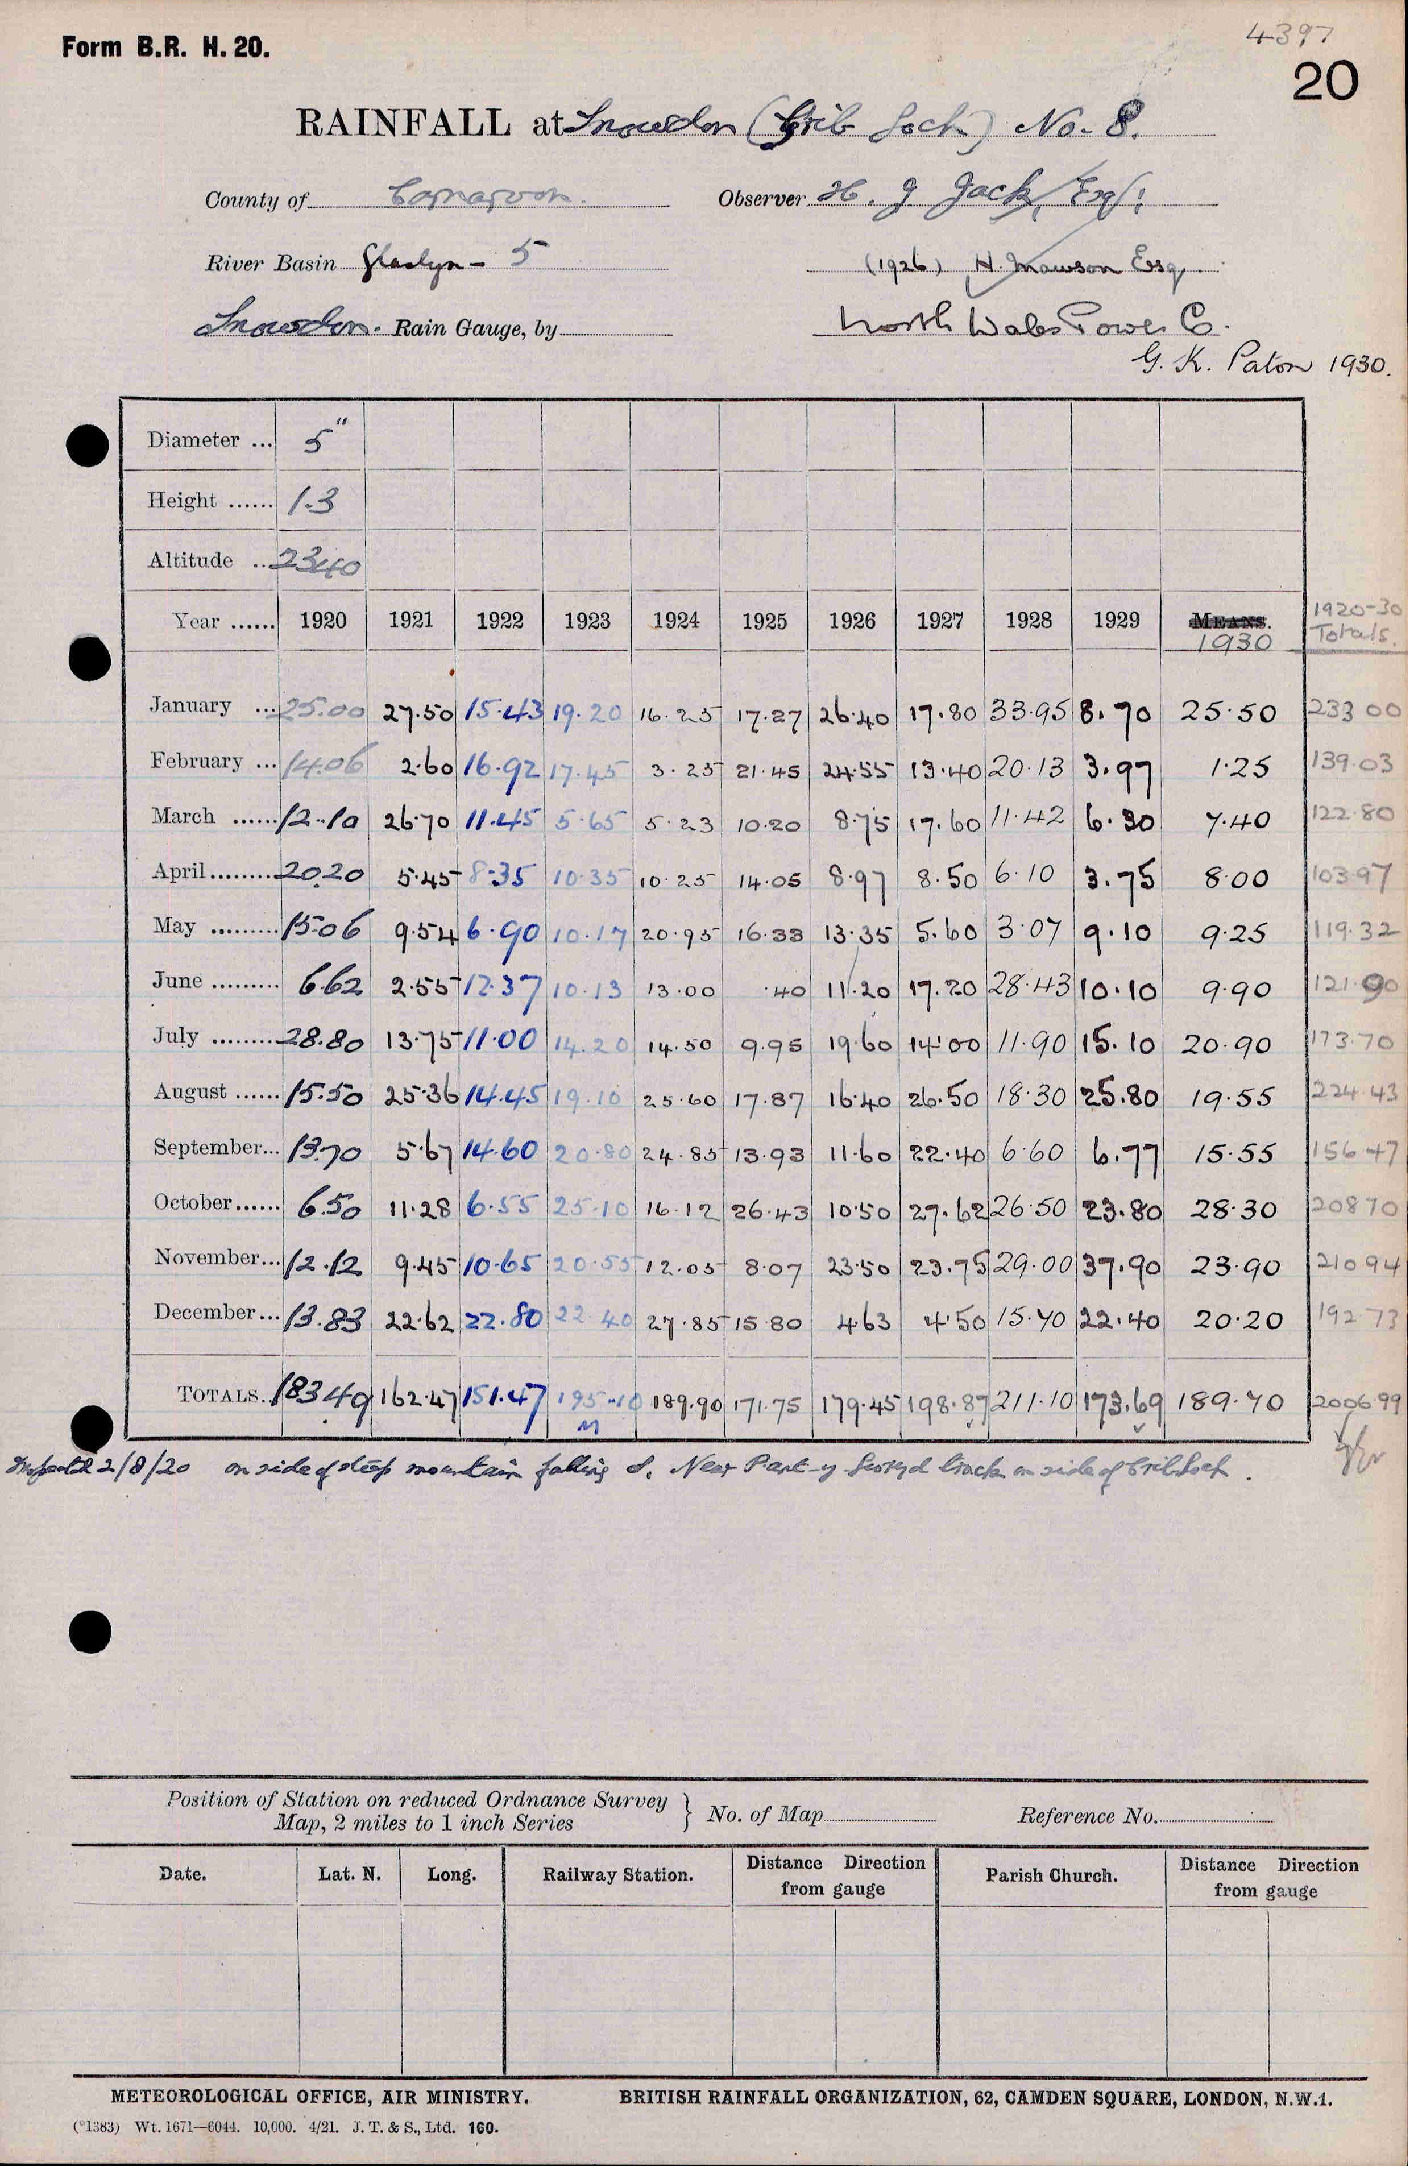 4397
Form B.R. H. 20.
20
RAINFALL at Snowdon (Crib Goch) No. 8.
County of Carnarvon. Observer H. J Jack, Esq:
River Basin Glaslyn - 5 (1926) H. Mawson Esq.
Snowdon. Rain Gauge, by North Wales Power Co.
G. K. Paton 1930.
Diameter ... 5"
Height ...... 1.3
Altitude ... 2340
Year ...... 1920 1921 1922 1923 1924 1925 1926 1927 1928 1929 MEANS. 1930 1920-30 Totals.
January ... 25.00 27.50 15.43 19.20 16.25 17.27 26.40 17.80 33.95 8.70 25.50 233 00
February ... 14.06 2.60 16.92 17.45 3.25 21.45 24.55 13.40 20.13 3.97 1.25 139.03
March ...... 12.10 26.70 11.45 5.65 5.23 10.20 8.75 17.60 11.42 6.30 7.40 122.80
April ........ 20.20 5.45 8.35 10.35 10.25 14.05 8.97 8.50 6.10 3.75 8.00 103.97
May ......... 15.06 9.54 6.90 10.17 20.95 16.33 13.35 5.60 3.07 9.10 9.25 119.32
June ......... 6.62 2.55 12.37 10.13 13.00 .40 11.20 17.20 28.43 10.10 9.90 121.90
July ......... 28.80 13.75 11.00 14.20 14.50 9.95 19.60 14.00 11.90 15.10 20.90 173.70
August ...... 15.50 25.36 14.45 19.10 25.60 17.87 16.40 26.50 18.30 25.80 19.55 224.43
September... 13.70 5.67 14.60 20.80 24.85 13.93 11.60 22.40 6.60 6.77 15.55 156.47
October ...... 6.50 11.28 6.55 25.10 16.12 26.43 10.50 27.62 26.50 23.80 28.30 208 70
November... 12.12 9.45 10.65 20.55 12.05 8.07 23.50 23.75 29.00 37.90 23.90 210 94
December ... 13.83 22.62 22.80 22.40 27.85 15.80 4.63 4.50 15.70 22.40 20.20 192 73
TOTALS.. 183.49 162.47 151.47 195.10 189.90 171.75 179.45 198.87 211.10 173.69 189.70 2006.99
Inspected 2/8/20 on side of steep mountain falling S. Near Pant-y track on side of Crib Goch.
Position of Station on reduced Ordnance Survey
Map, 2 miles to 1 inch Series } No. of Map Reference No.
Date. Lat. N. Long. Railway Station. Distance Direction from gauge Parish Church. Distance Direction from gauge
METEOROLOGICAL OFFICE, AIR MINISTRY. BRITISH RAINFALL ORGANIZATION, 62, CAMDEN SQUARE, LONDON, N.W.1.
(*1383) Wt. 1671—6044. 10,000. 4/21. J. T. & S., Ltd. 160.